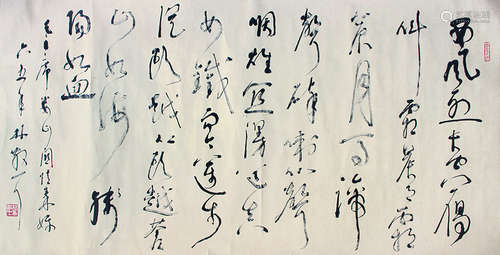 西风烈长空雁
叫霜晨月霜
晨月马蹄
声碎喇叭声
咽雄关漫道真
如铁而今迈步
从头越从头越苍
山如海残
阳如血
毛主席娄山关忆秦娥
六五年林散耳